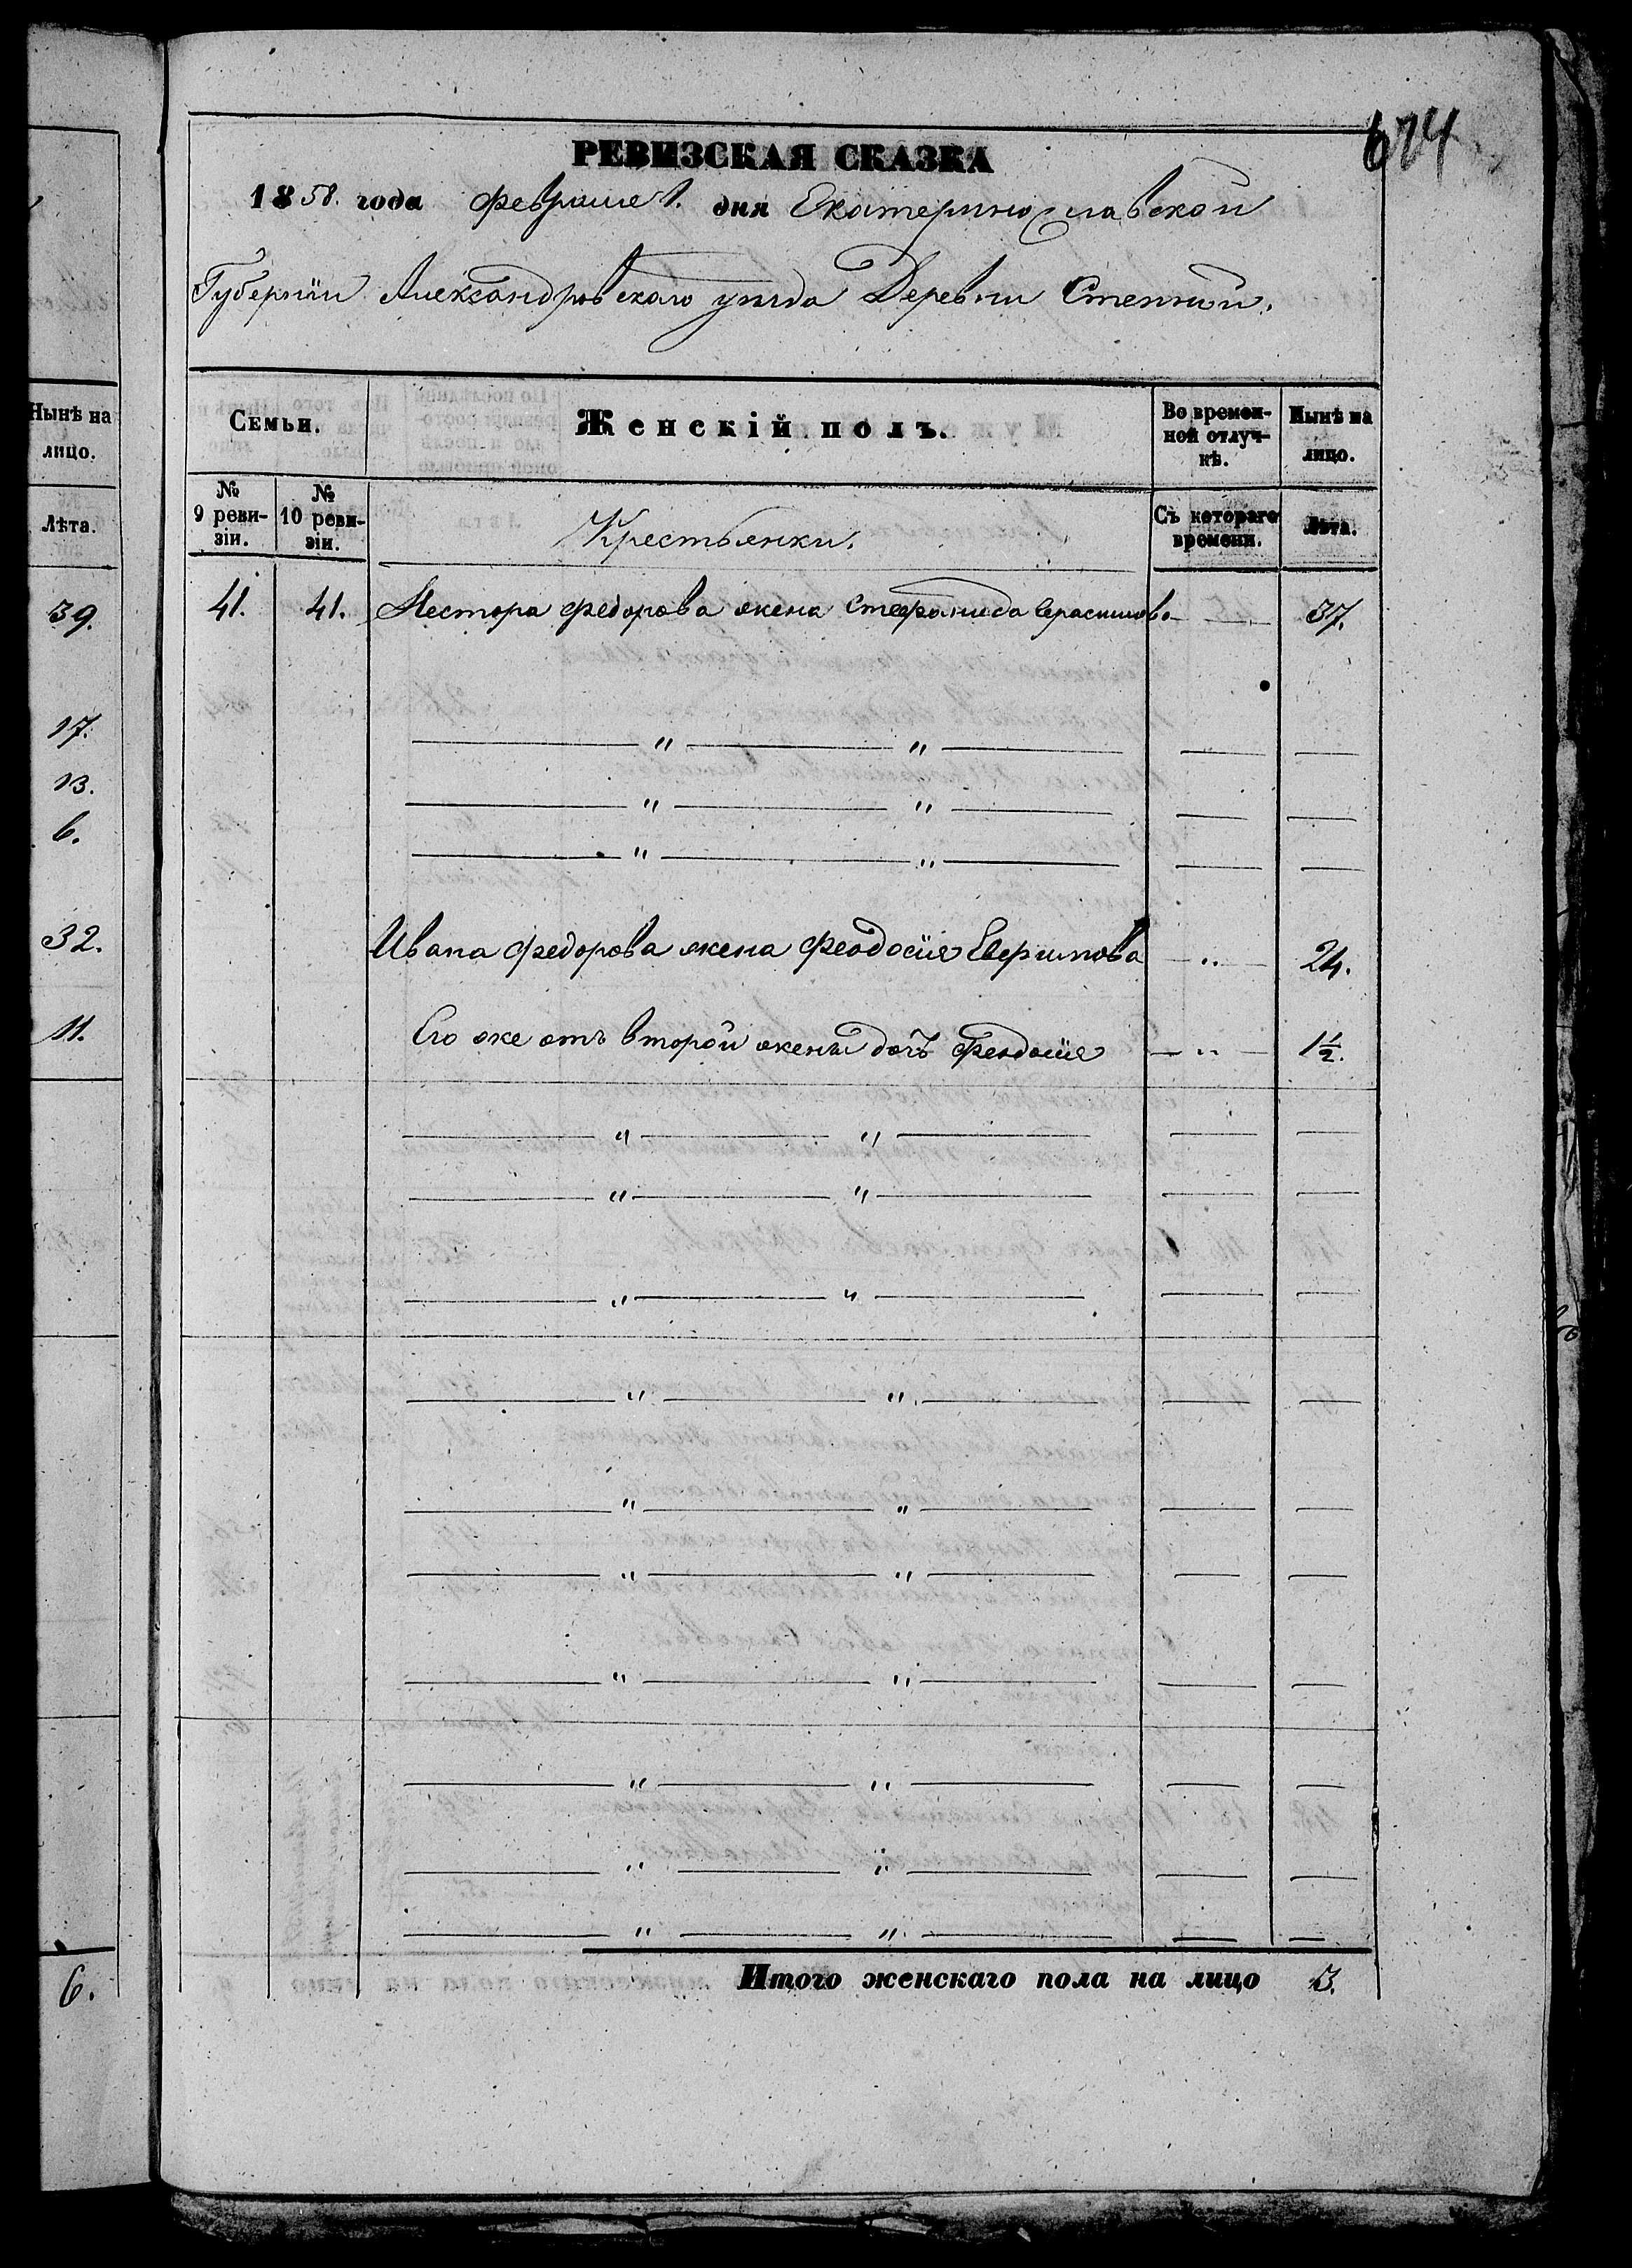 674
РЕВИЗСКАЯ СКАЗКА
1858. года Февраля 1. дня Екатеринославской
Губерніи Александровскаго уѣзда Деревни Степной.
Нынѣ на
лицо.
Лѣта.
39.
17.
13.
6.
32.
11.
6.
Семьи. Женскій полъ. Во времен-
ной отлуч-
кѣ. Нынѣ на
лицо.
№
9 реви-
зіи. №
10 реви-
зіи. Крестьянки. Съ котораго
времени. Лѣта.
41. 41. Нестора Федорова жена Стефанида Герасимова — „ — 37.
— „ — „ — — —
— „ — „ — — —
— „ — „ — — —
Ивана Федорова жена Феодосія — „ — 24.
Его же отъ второй жены дочь Феодосія — „ — 1½.
— „ — „ — — —
— „ — „ — — —
— „ — „ — — —
— „ — „ — — —
— „ — „ — — —
— „ — „ — — —
— „ — „ — — —
— „ — „ — — —
— „ — „ — — —
— „ — „ — — —
Итого женскаго пола на лицо 3.